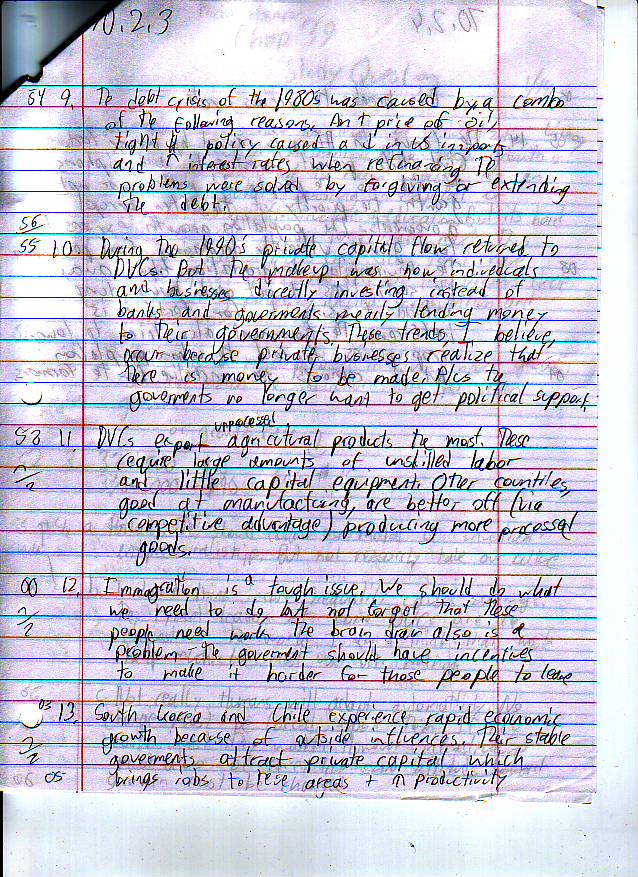 10.2.3
54 9. The debt crisis of the 1980s was caused by a combo
of the following reasons. An ↑ price of oil,
tight $ policy caused a ↓ in US imports
and ↑ interest rates when refinancing. The
problems were solved by forgiving or extending
the debt.
56
55 10. During the 1990's private capital flow returned to
DVCs. But the makeup was now individuals
and businesses directly investing instead of
banks and goverments mearly lending money
to their governments. These trends, I believe,
occur because private businesses realize that
there is money to be made. Plus the
goverments no longer want to get political support.
58 11. DVCs export unprocessed agricultural products the most. These
require large amounts of unskilled labor
and little capital equipment. Other countries,
good at manufacturing, are better off (via
competitive advantage) producing more processed
goods.
2/2
00 12. Immagration is a tough issue. We should do what
we need to do but not forget that those
people need work. The brain drain also is a
problem - the goverment should have incentives
to make it harder for those people to leave
2/2
03 13. South Korea and Chile experience rapid economic
growth because of outside influences. Their stable
goverments attract private capital which
brings jobs to these areas + ↑ productivity
2/2
05